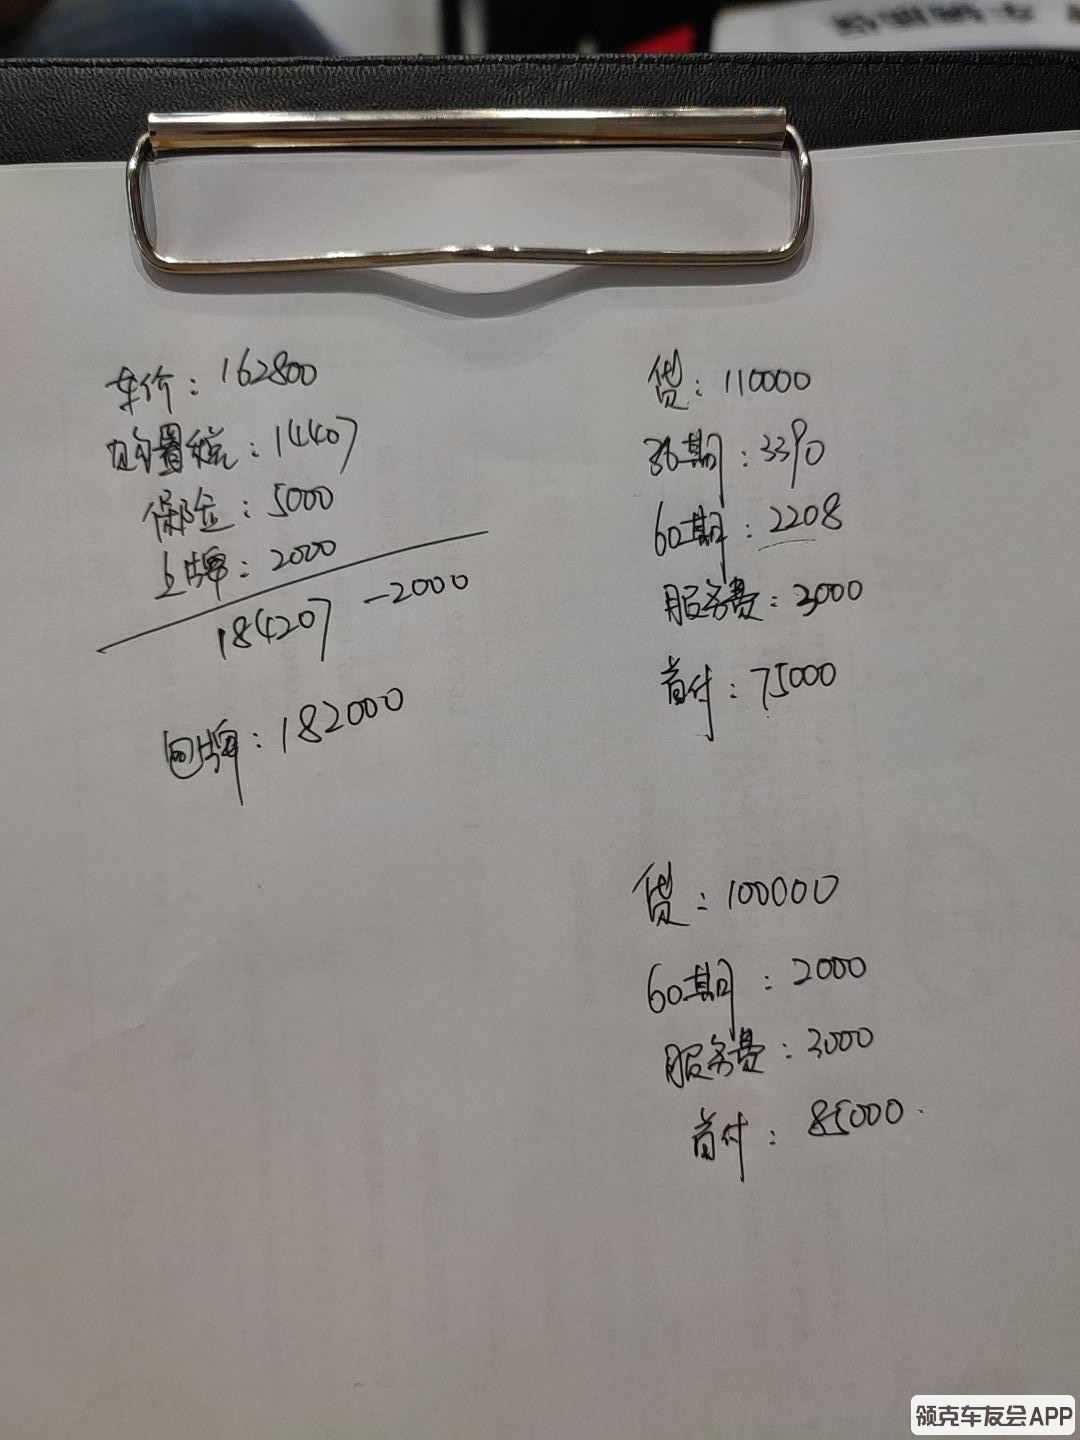 车价：162800
购置税：14407
保险：5000
上牌：2000
184207 -2000
包牌：182000
贷：110000
36期：3390
60期：2208
服务费：3000
首付：75000
贷：100000
60期：2000
服务费：3000
首付：85000
领克车友会APP